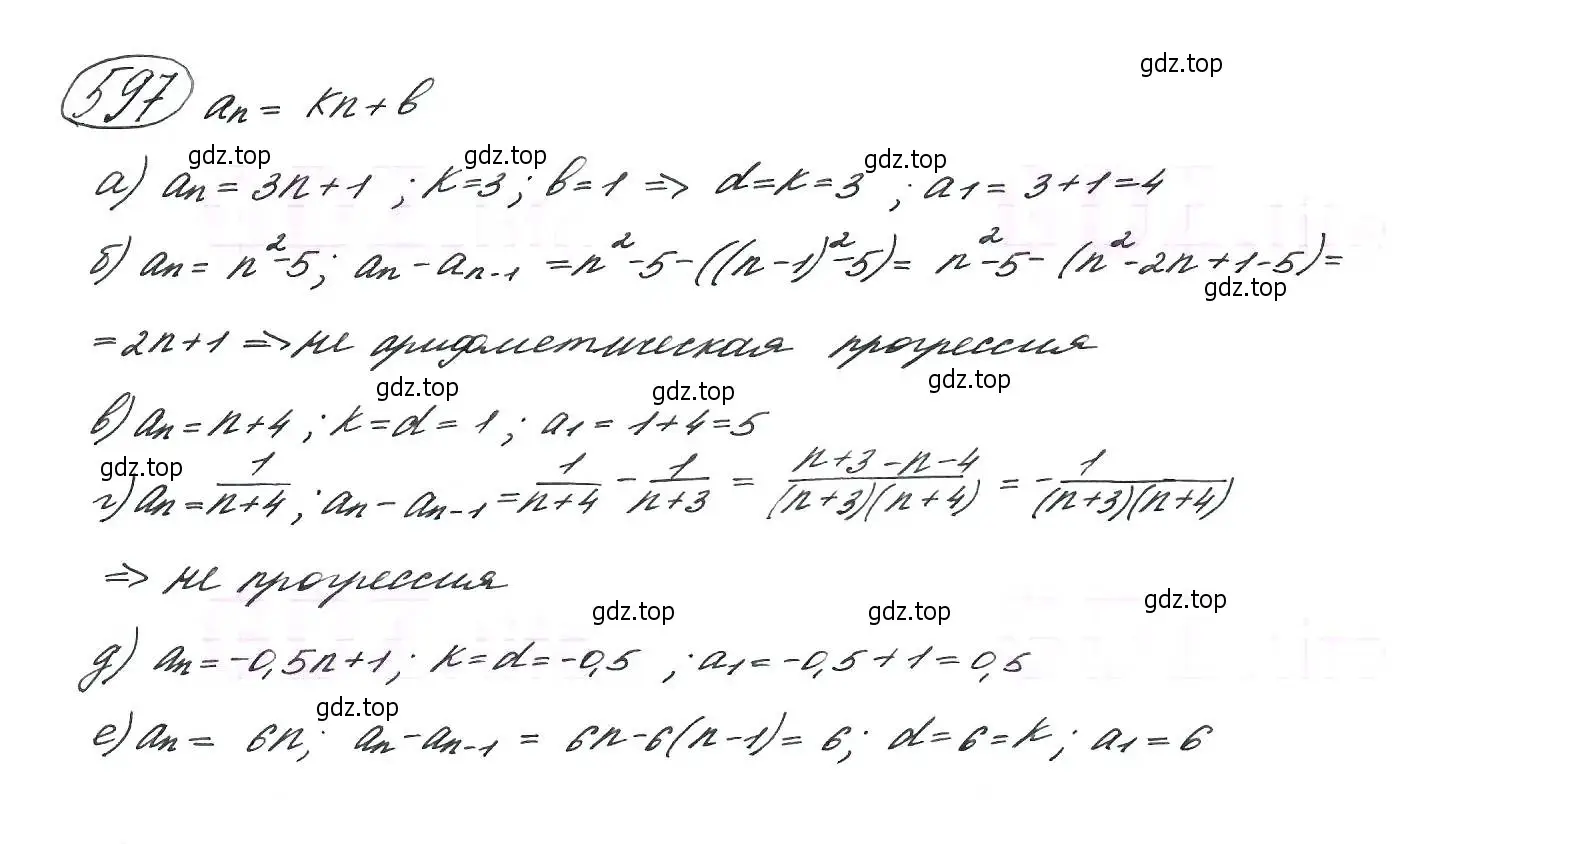 gdz.top
597 aₙ = кn + в
gdz.top gdz.top gdz.top
а) aₙ = 3n+1 ; к=3 ; в=1 => d=к=3 ; a₁ = 3+1=4
б) aₙ = n²-5; aₙ - aₙ₋₁ = n²-5-((n-1)²-5)= n²-5-(n²-2n+1-5)=
gdz.top
=2n+1 => не арифметическая прогрессия
gdz.top gdz.top gdz.top
в) aₙ = n+4 ; к=d=1 ; a₁ = 1+4=5
gdz.top
г) aₙ = 1/(n+4) ; aₙ - aₙ₋₁ = 1/(n+4) - 1/(n+3) = (n+3-n-4)/((n+3)(n+4)) = - 1/((n+3)(n+4))
=> не прогрессия
gdz.top gdz.top gdz.top
д) aₙ = -0,5n+1; к=d=-0,5 ; a₁ = -0,5+1=0,5
gdz.top
е) aₙ = 6n; aₙ - aₙ₋₁ = 6n-6(n-1)= 6; d=6=к ; a₁ = 6